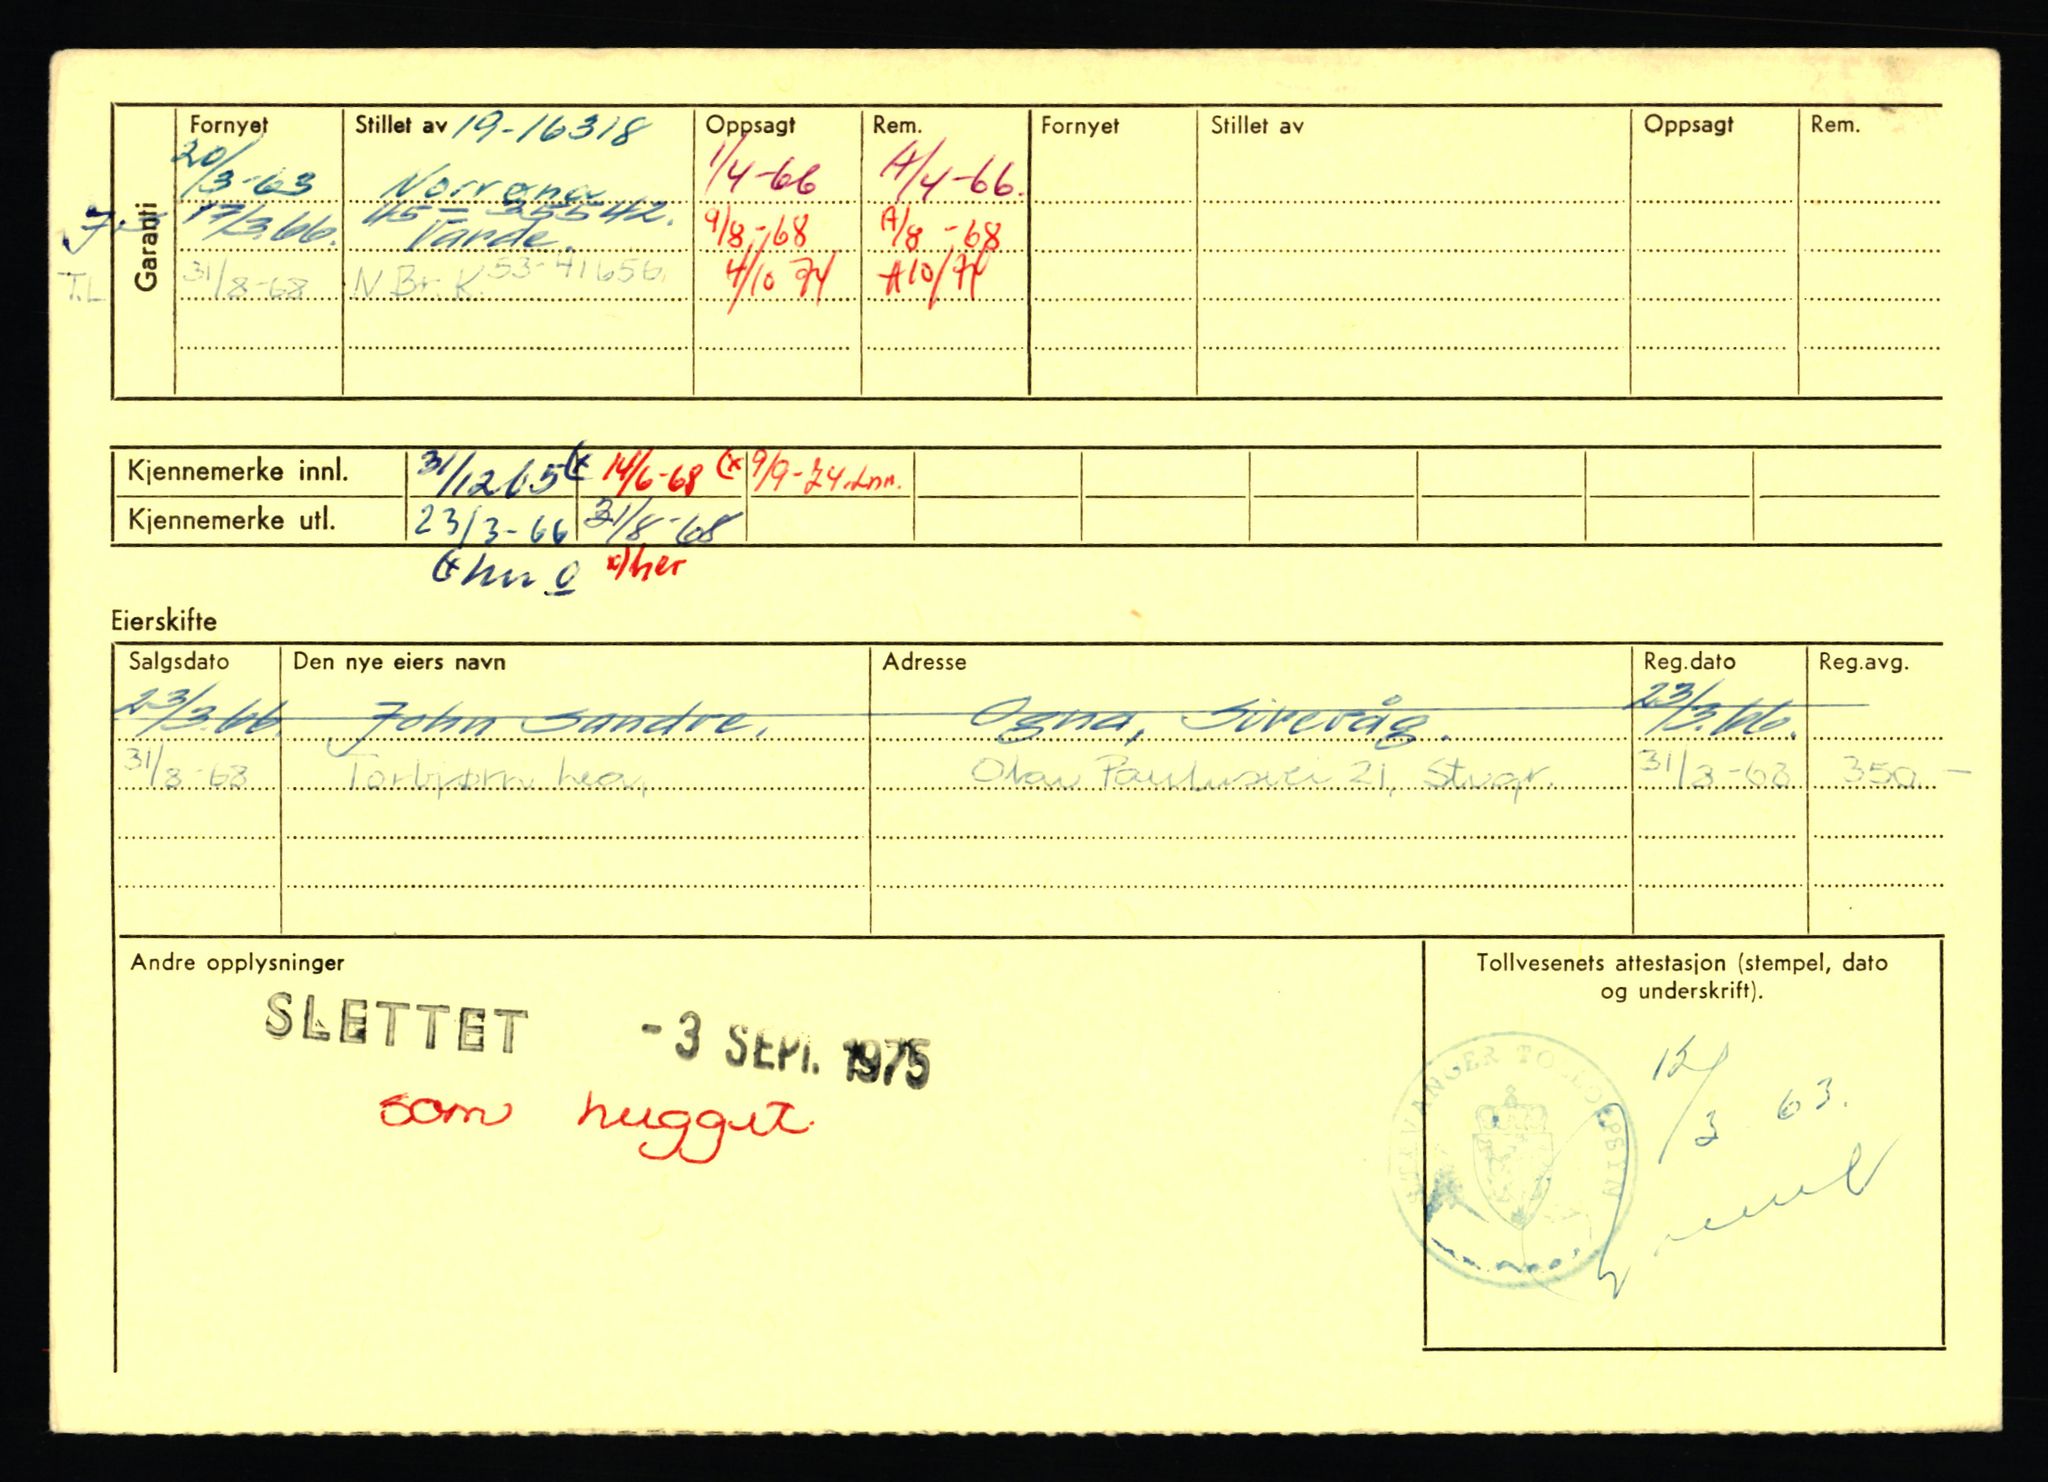 Garanti
Fornyet Stillet av 19-16318 Oppsagt Rem. Fornyet Stillet av Oppsagt Rem.
20/3-63 Norrøna 1/4-66 A/4-66.
17/3.66. 45-35542. Varde. 9/8-68 A/8-68
T.L 31/8-68 N.Br.K. 53-41656. 4/10 74 A10/74
Kjennemerke innl. 31/12 65 (x 14/6-68 (x 9/9-74
Kjennemerke utl. 23/3-66 31/8-68
x) her
Eierskifte
Salgsdato Den nye eiers navn Adresse Reg.dato Reg.avg.
23/3.66. John Sandve, Ogna, Sirevåg. 23/3.66.
31/8-68 Torbjørn Olav Paulusvei 21, Stvgr. 31/8-68 350.-
Andre opplysninger
SLETTET -3 SEPT. 1975
som hugget.
Tollvesenets attestasjon (stempel, dato
og underskrift).
STAVANGER TOLLOPPSYN
12/3 63.